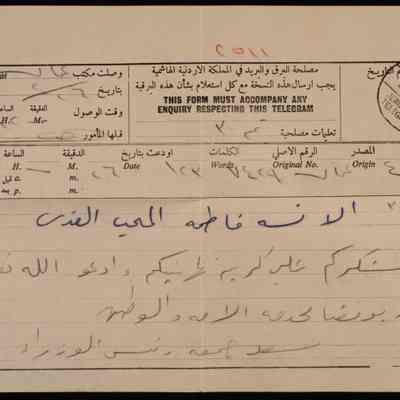 ٢٥١١
مصلحة البرق والبريد في المملكة الاردنية الهاشمية
يجب ارسال هذه النسخة مع كل استعلام بشأن هذه البرقية
THIS FORM MUST ACCOMPANY ANY
ENQUIRY RESPECTING THIS TELEGRAM
تعليمات مصلحية
وصلت مكتب
بتاريخ
وقت الوصول الدقيقة الساعة
H. M.
قبلها المأمور
التاريخ
المصدر الرقم الاصلي الكلمات اودعت بتاريخ الدقيقة الساعة
Origin Original No. Words Date M. H.
m. a
m. p
الانسه فاطمه المحب القدس
اشكركم على كريم تهانيكم وادعو الله
يوفقنا لخدمه الامه والوطن
سعد جمعه رئيس الوزراء